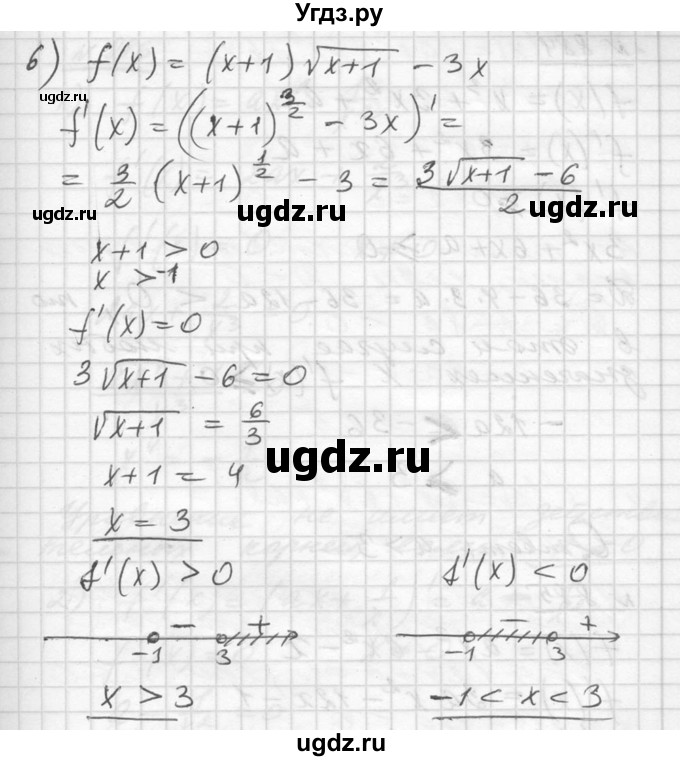 Угдз.ру
6) f(x) = (x+1)√(x+1) - 3x
ugdz.ru
f'(x) = ((x+1)^(3/2) - 3x)' =
= 3/2 (x+1)^(1/2) - 3 = (3√(x+1) - 6)/2
ugdz.ru ugdz.ru ugdz.ru
x+1 > 0
x > -1
f'(x) = 0
3√(x+1) - 6 = 0
√(x+1) = 6/3
ugdz.ru
x+1 = 4
x = 3
f'(x) > 0 f'(x) < 0
- + - +
-1 3 -1 3
x > 3 -1 < x < 3
ugdz.ru